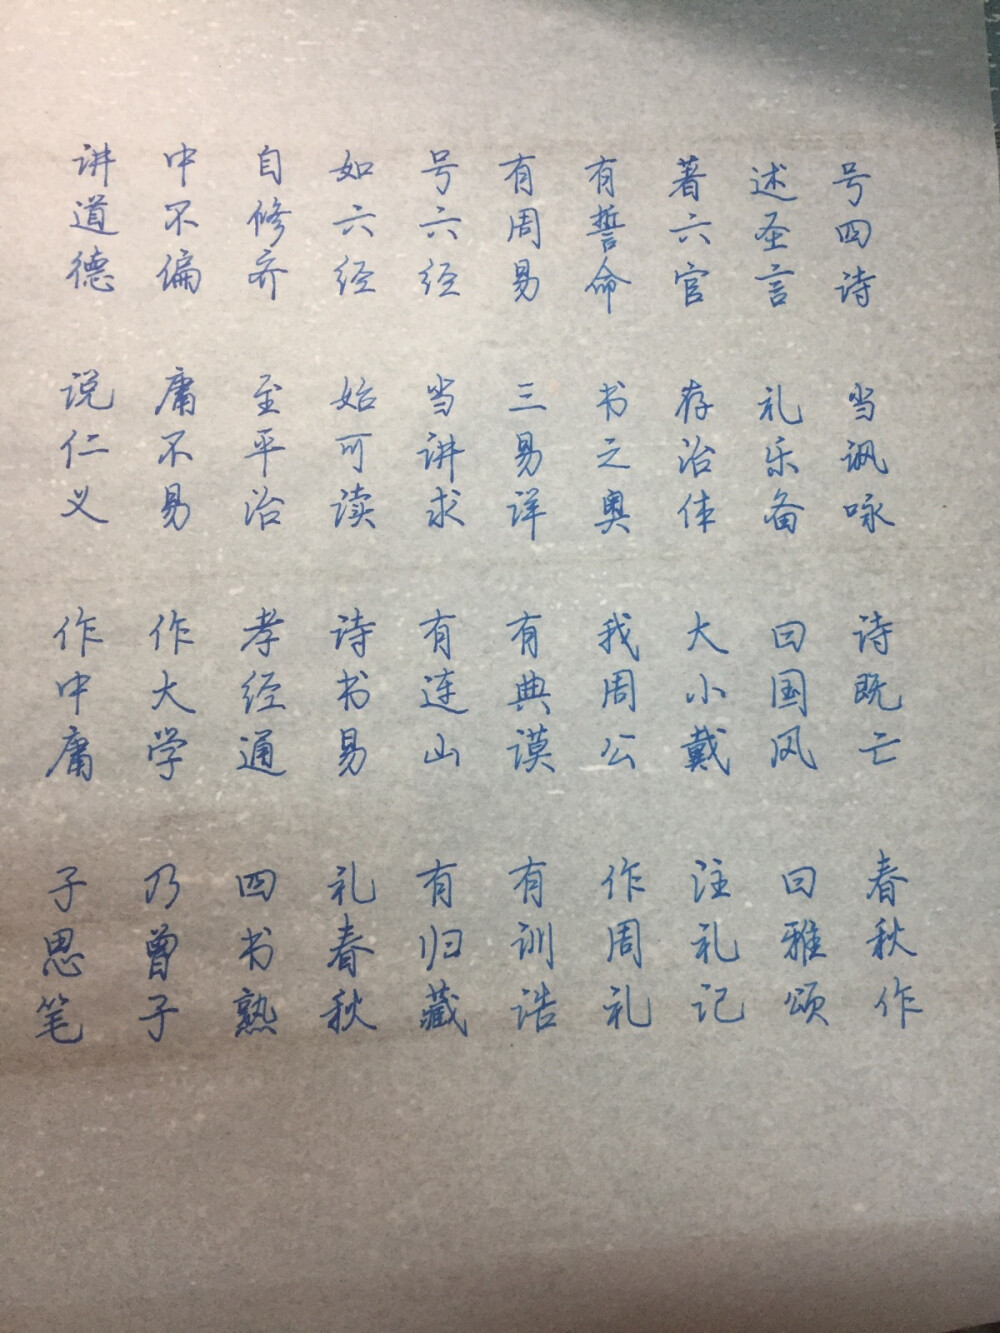 讲道德 说仁义 作中庸 子思笔
中不偏 庸不易 作大学 乃曾子
自修齐 至平治 孝经通 四书熟
如六经 始可读 诗书易 礼春秋
号六经 当讲求 有连山 有归藏
有周易 三易详 有典谟 有训诰
有誓命 书之奥 我周公 作周礼
著六官 存治体 大小戴 注礼记
述圣言 礼乐备 曰国风 曰雅颂
号四诗 当讽咏 诗既亡 春秋作